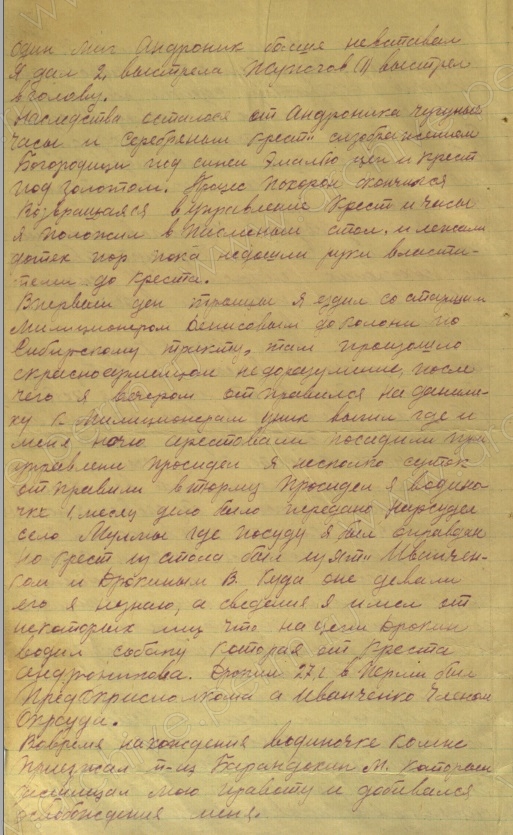 один миг Андроник больше невставал
Я дал 2, выстрела Жужгов 1) выстрел
вголову.
Наследства осталося от Андроника чугуные
часы и серебреный крест сизображением
Богородицы под синей Эмалью цеп и крест
под золотом. Процес похорон окончился
Возвращаяся вуправление Крест и часы
я положил в Письменый стол. и лежали
дотех пор пока недошли руки власти-
тели до креста.
Впервый ден троицы я ездил со старшим
Милиционером Денисовым до колони по
Сибирскому тракту, там произошло
скрасноармейцом недоразумение, после
чего я вечером отправился на
ку к Милиционерам у них выпил где и
меня ночю арестовали посадили при
управлени просидел я несколко суток
отправили втюрму Просидел я водино-
чке 1 месяц дело было передано нарсуду
село Муллы где посуду я был оправдан
но крест из стола был изят Иванчен-
ком и Дрокиным В. Куда оне девали
его я незнаю, а сведения я имел от
некоторых лиц что нацепи Дрокин
водил собаку которая от креста
Андроникова. Дрокин 27 г. в Перми был
Пред а Иванченко Членом
Окрсуда.
Вовремя нахождения водиночке комне
Приезжал М. которой
мою правоту и добивался
освобождения меня.